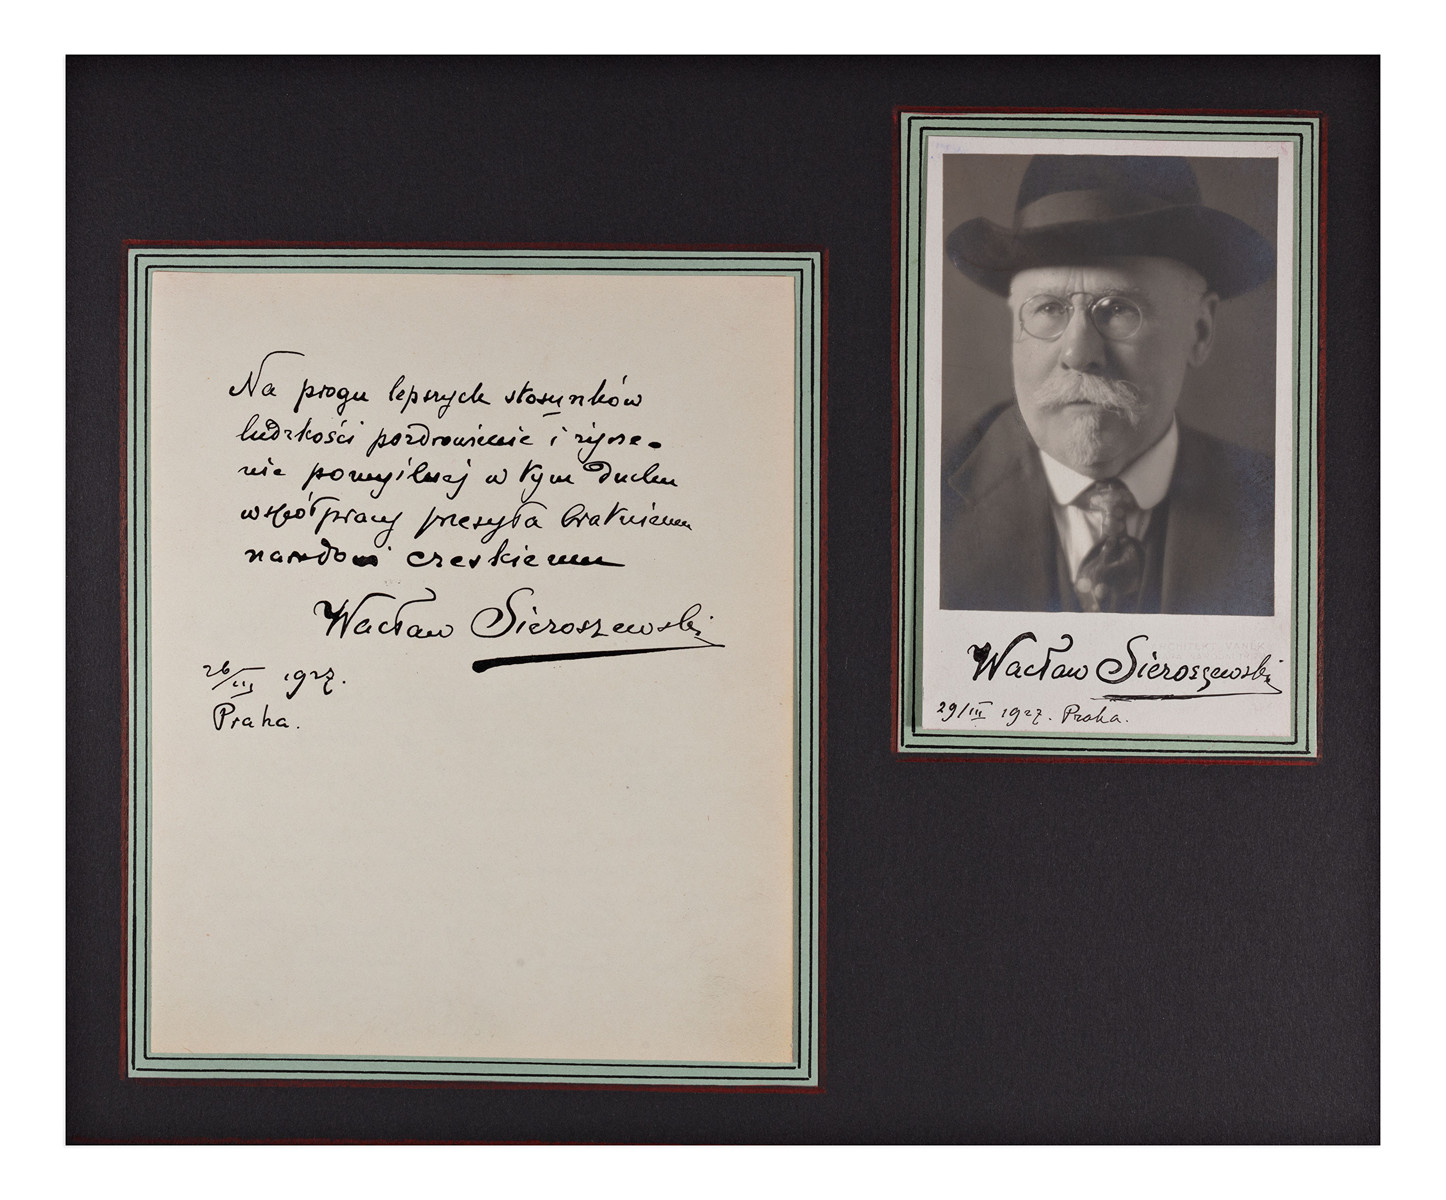 Na progu lepszych stosunków
ludzkości pozdrowienie i życze-
nie pomyślnej w tym duchu
współpracy przesyła bratniemu
narodowi czeskiemu
Wacław Sieroszewski
26/III 1927.
Praha.
Wacław Sieroszewski
29/III 1927. Praha.